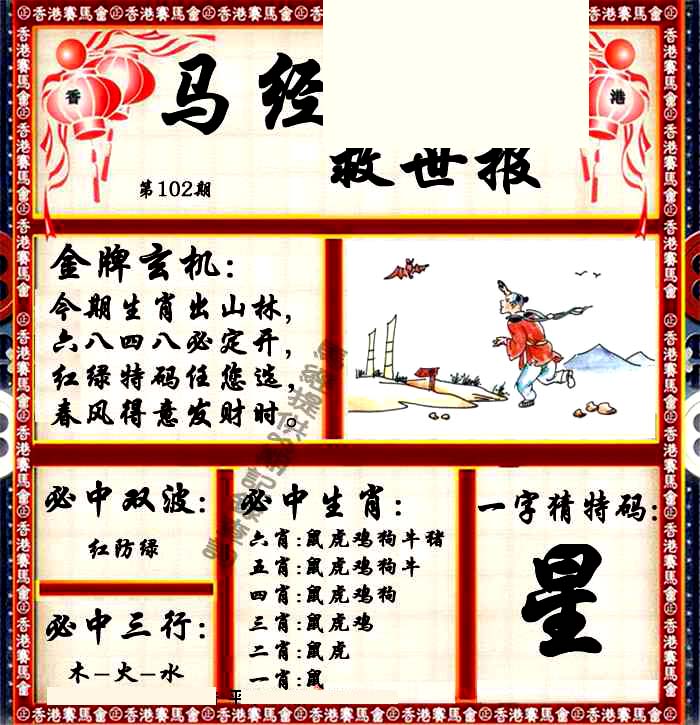 香港賽馬會 香港賽馬會 香港賽馬會 香港賽馬會 香港賽馬會 香港賽馬會 香港賽馬會
香
港
马经
救世报
第102期
金牌玄机:
今期生肖出山林,
六八四八必定开,
红绿特码任您选,
春风得意发财时。
必中双波:
红防绿
必中三行:
木-火-水
必中生肖:
六肖:鼠虎鸡狗牛猪
五肖:鼠虎鸡狗牛
四肖:鼠虎鸡狗
三肖:鼠虎鸡
二肖:鼠虎
一肖:鼠
一字猜特码:
星
香港賽馬會 香港賽馬會 香港賽馬會 香港賽馬會 香港賽馬會 香港賽馬會 香港賽馬會